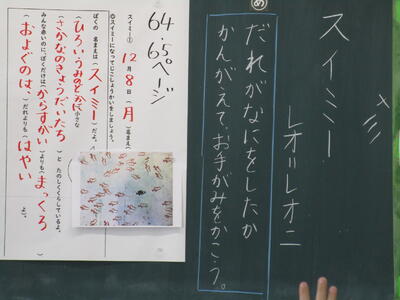 スイミー
レオ=レオニ
め
だれがなにをしたか
かんがえて、お手がみをかこう。
64.65ページ
スイミー①
12月8日(月)
☆スイミーになってじこしょうかいをしましょう。
ぼくの 名まえは(スイミー)だよ。
(ひろいうみのどこか)に小さな
(さかなのきょうだいたち)と たのしくくらしているよ。
みんな赤いのに、ぼくだけは(からすがい)よりも(まっくろ)
(およぐのは、)だれよりも(はやい)よ。